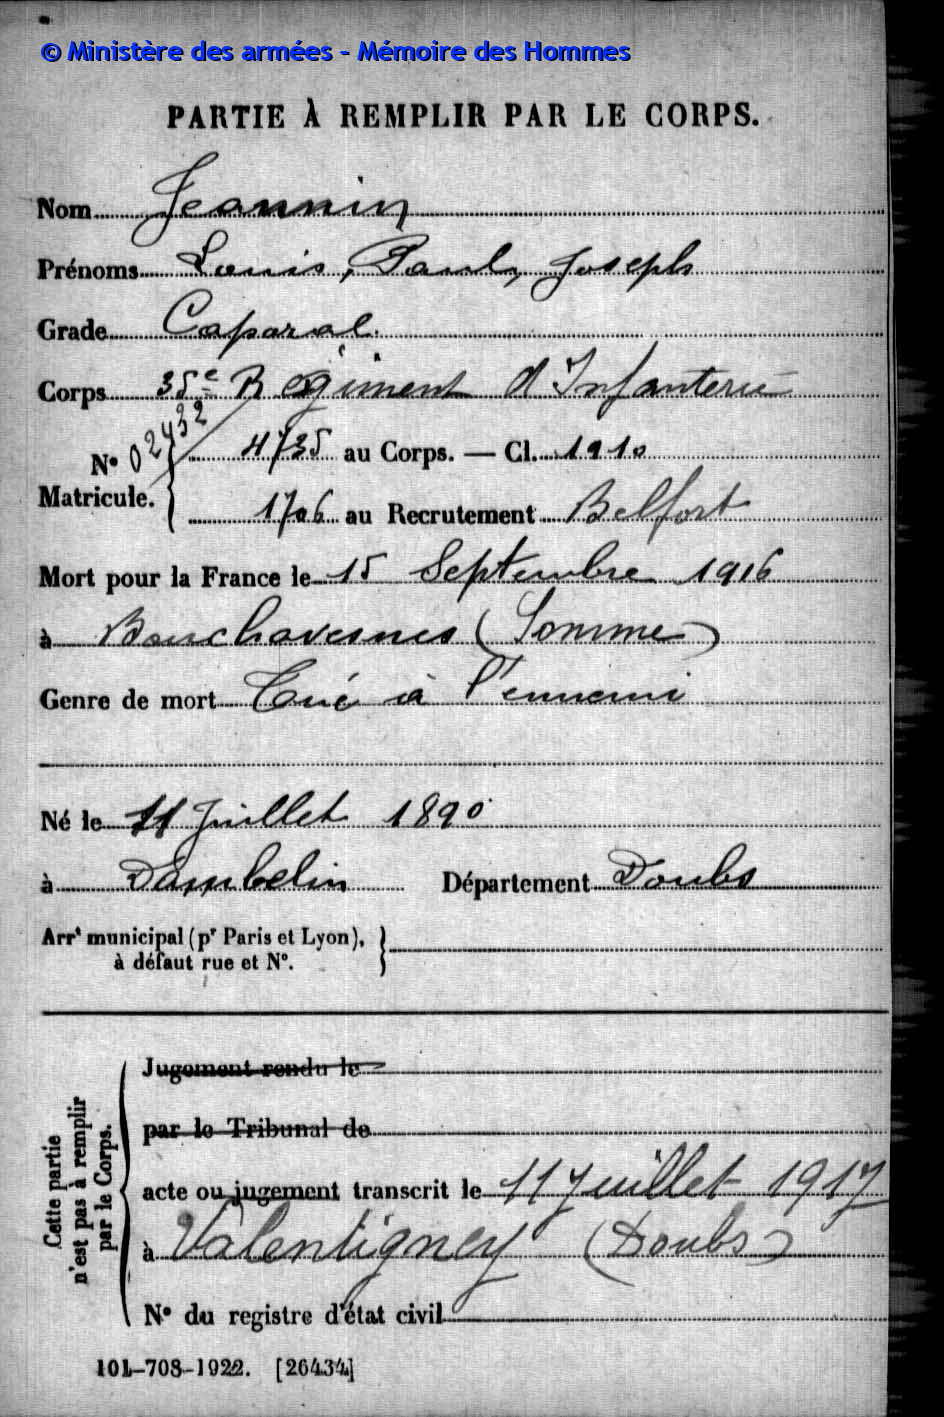 © Ministère des armées - Mémoire des Hommes
PARTIE À REMPLIR PAR LE CORPS.
Nom Jeannin
Prénoms Louis, Paul, Joseph
Grade Caporal.
Corps 35e Régiment d'Infanterie
N° 02432 4735 au Corps. — Cl. 1910
Matricule. 1706 au Recrutement Belfort
Mort pour la France le 15 Septembre 1916
à Bouchavesnes (Somme)
Genre de mort Tué à l'ennemi
Né le 11 Juillet 1890
à Dambelin Département Doubs
Arrt municipal (pr Paris et Lyon),
à défaut rue et N°.
Cette partie
n'est pas à remplir
par le Corps.
Jugement rendu le
par le Tribunal de
acte ou jugement transcrit le 11 Juillet 1917
à Valentigney (Doubs)
N° du registre d'état civil
101-708-1922. [26434]